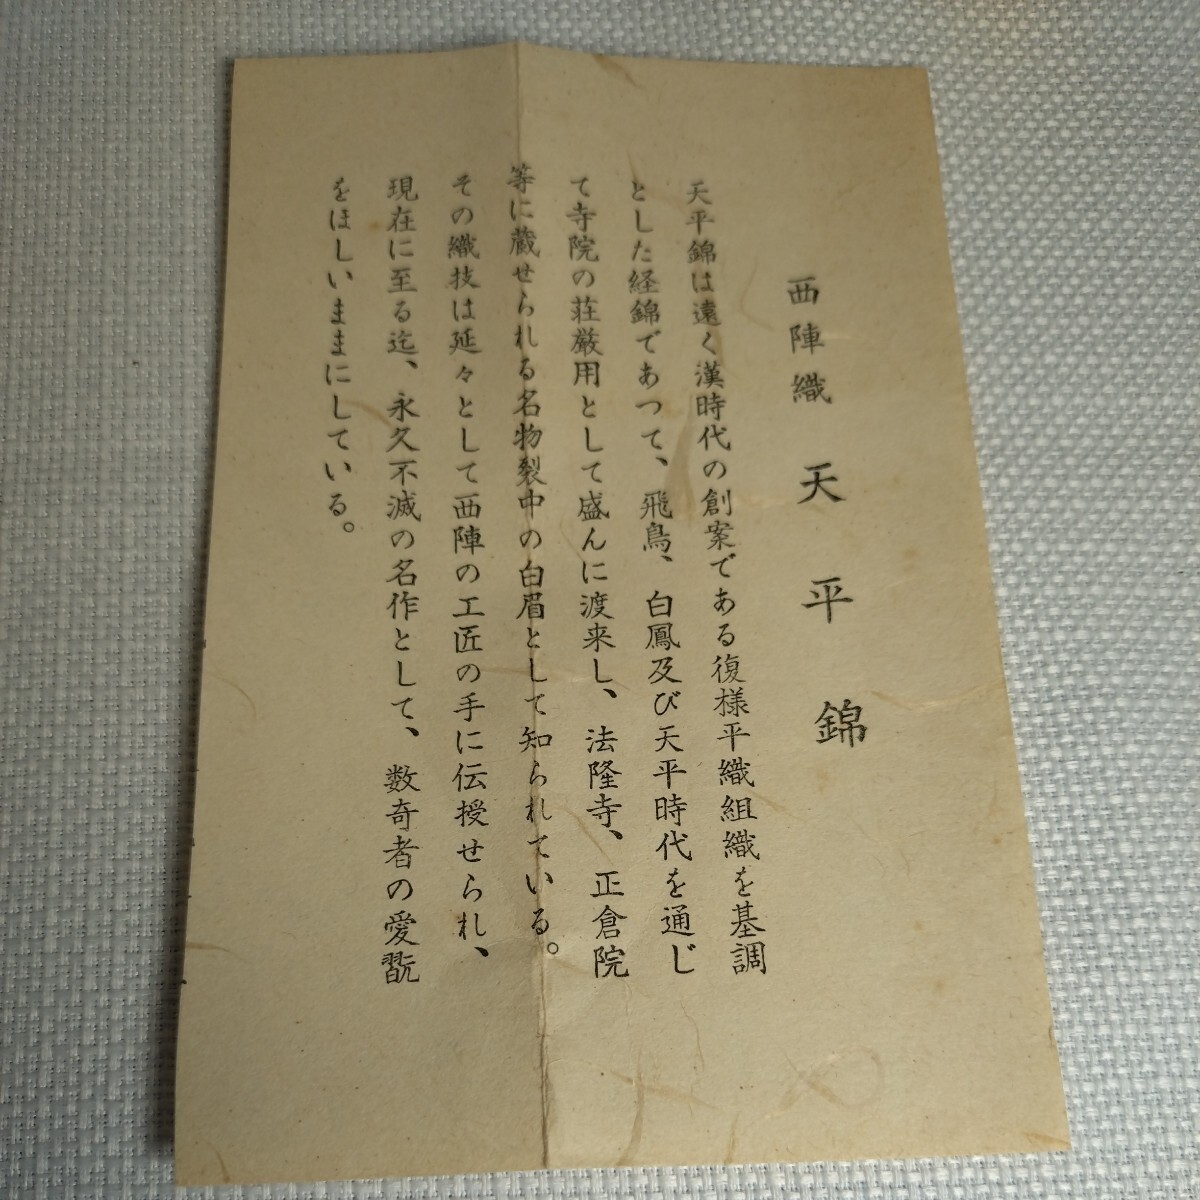 西陣織 天平錦
天平錦は遠く漢時代の創案である復様平織組織を基調
とした経錦であつて、飛鳥、白鳳及び天平時代を通じ
て寺院の荘厳用として盛んに渡来し、法隆寺、正倉院
等に蔵せられる名物裂中の白眉として知られている。
その織技は延々として西陣の工匠の手に伝授せられ、
現在に至る迄、永久不滅の名作として、数奇者の愛翫
をほしいままにしている。